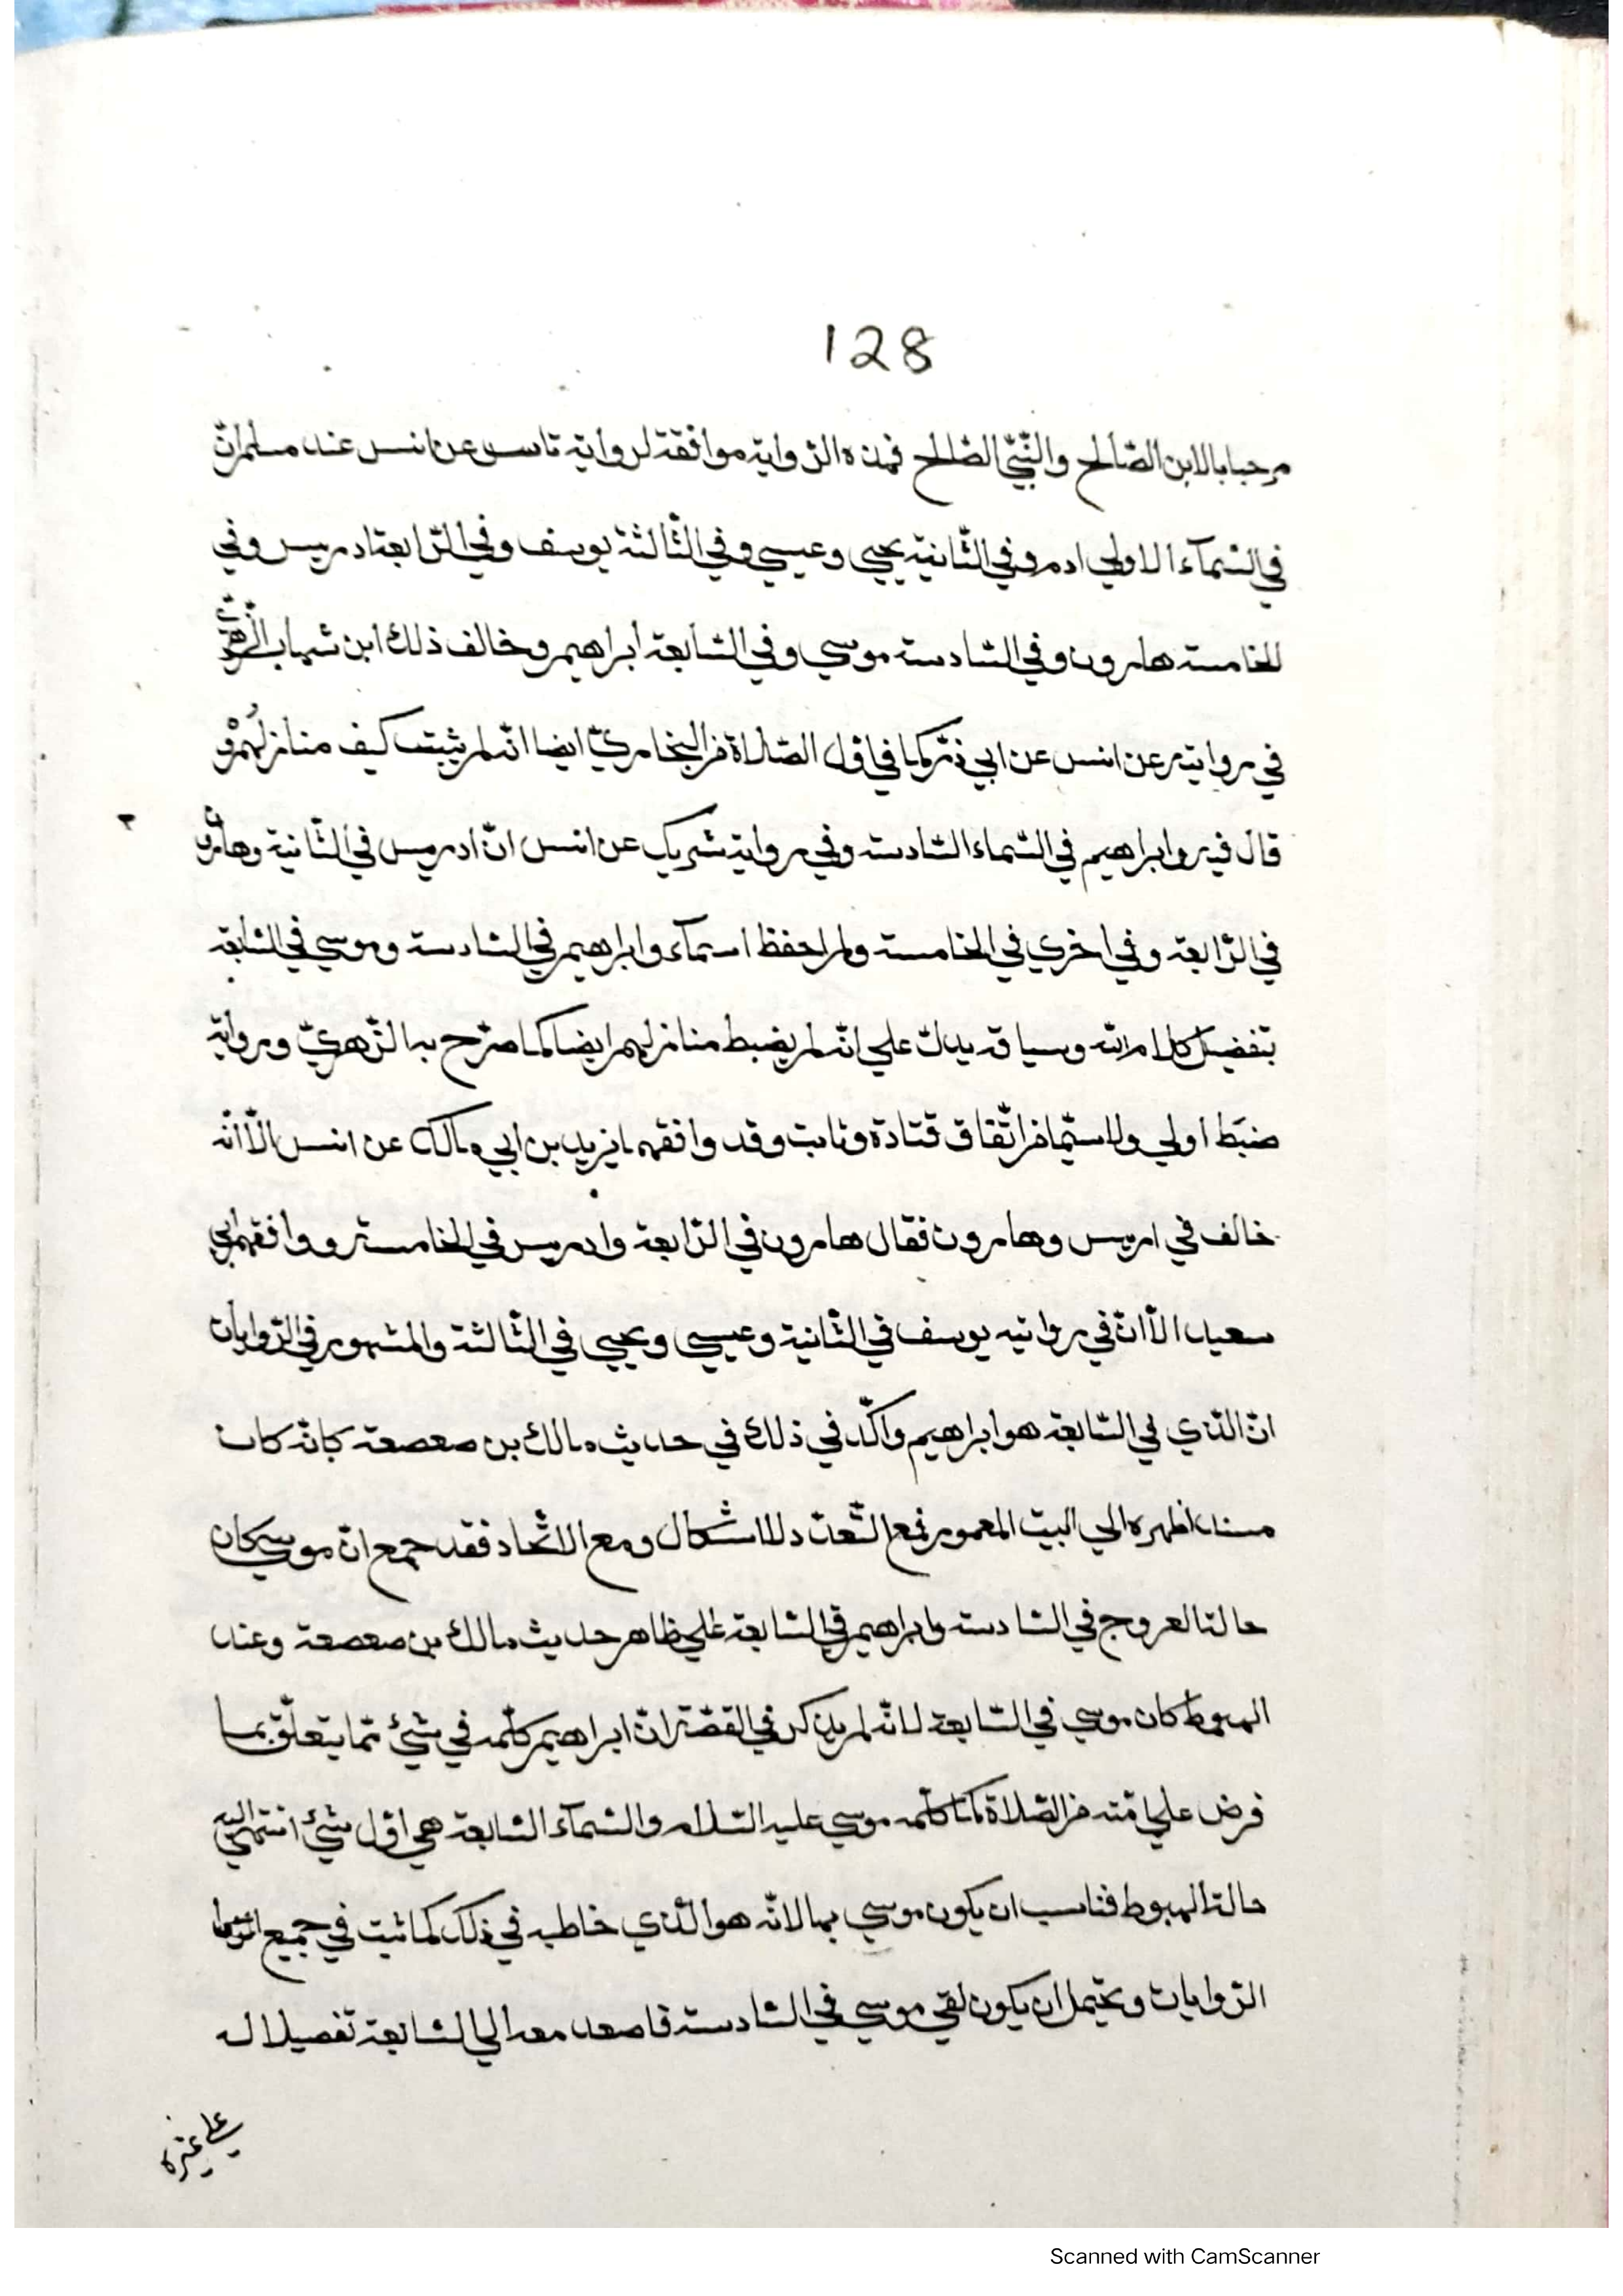 128
مرحبا بالابن الصّالح والنّبيّ الصّالح فهذه الرّواية موافقة لرواية ثابت عن انس عند مسلم انّ
في السّمآء الاولي ادم وفي الثّانية يحيي وعيسي وفي الثّالثة يوسف وفي الرّابعة ادريس وفي
الخامسة هارون وفي السّادسة موسي وفي السّابعة ابراهيم وخالف ذلك ابن شهاب الزّهريّ
في روايته عن انس عن ابي ذرّ كما في اوّل الصّلاة من البخاريّ ايضا انّه لم يثبت كيف منازلهم و
قال فيه وابراهيم في السّماء السّادسة وفي رواية شريك عن انس انّ ادريس في الثّانية وهارون
في الرّابعة وفي اخري في الخامسة ولم احفظ اسمآء وابراهيم في السّادسة وموسي في السّابعة
بتفضيل كلام الله وسياقه يدل علي انّه لم يضبط منازلهم ايضا كما صرّح به الزّهريّ ورواية
ضبط اولي ولا سيّما من اتّفاق قتادة وثابت وقد وافقهما يزيد بن ابي مالك عن انس الّا انّه
خالف في اريس وهارون فقال هارون في الرّابعة وادريس في الخامسة ووافقهم ابي
سعيد الّا انّ في روايته يوسف في الثّانية وعيسي ويحيي في الثّالثة والمشهور في الرّوايات
انّ الّذي في السّابعة هو ابراهيم واكّد في ذلك في حديث مالك بن صعصعة كانّه كان
مسندا ظهره الي البيت المعمور فمع التّعدّد لا اشكال ومع الاتّحاد فقد جمع انّ موسي كان
حالة العروج في السّادسة وابراهيم في السّابعة علي ظاهر حديث مالك بن صعصعة وعند
الهبوط كان موسي في السّابعة لانّه لم يذكر في القصّة انّ ابراهيم كلّمه في شئ ممّا يتعلّق بما
فرض علي امّته من الصّلاة كما كلّمه موسي عليه السّلام والسّمآء السّابعة هي اوّل شئ انتهي اليه
حالة الهبوط فناسب ان يكون موسي بها لانّه هو الّذي خاطبه في ذلك كما ثبت في جميع
الرّوايات ويحتمل ان يكون لقي موسي في السّادسة فاصعد معه الي السّابعة تفصيلا له
علي غيره
Scanned with CamScanner